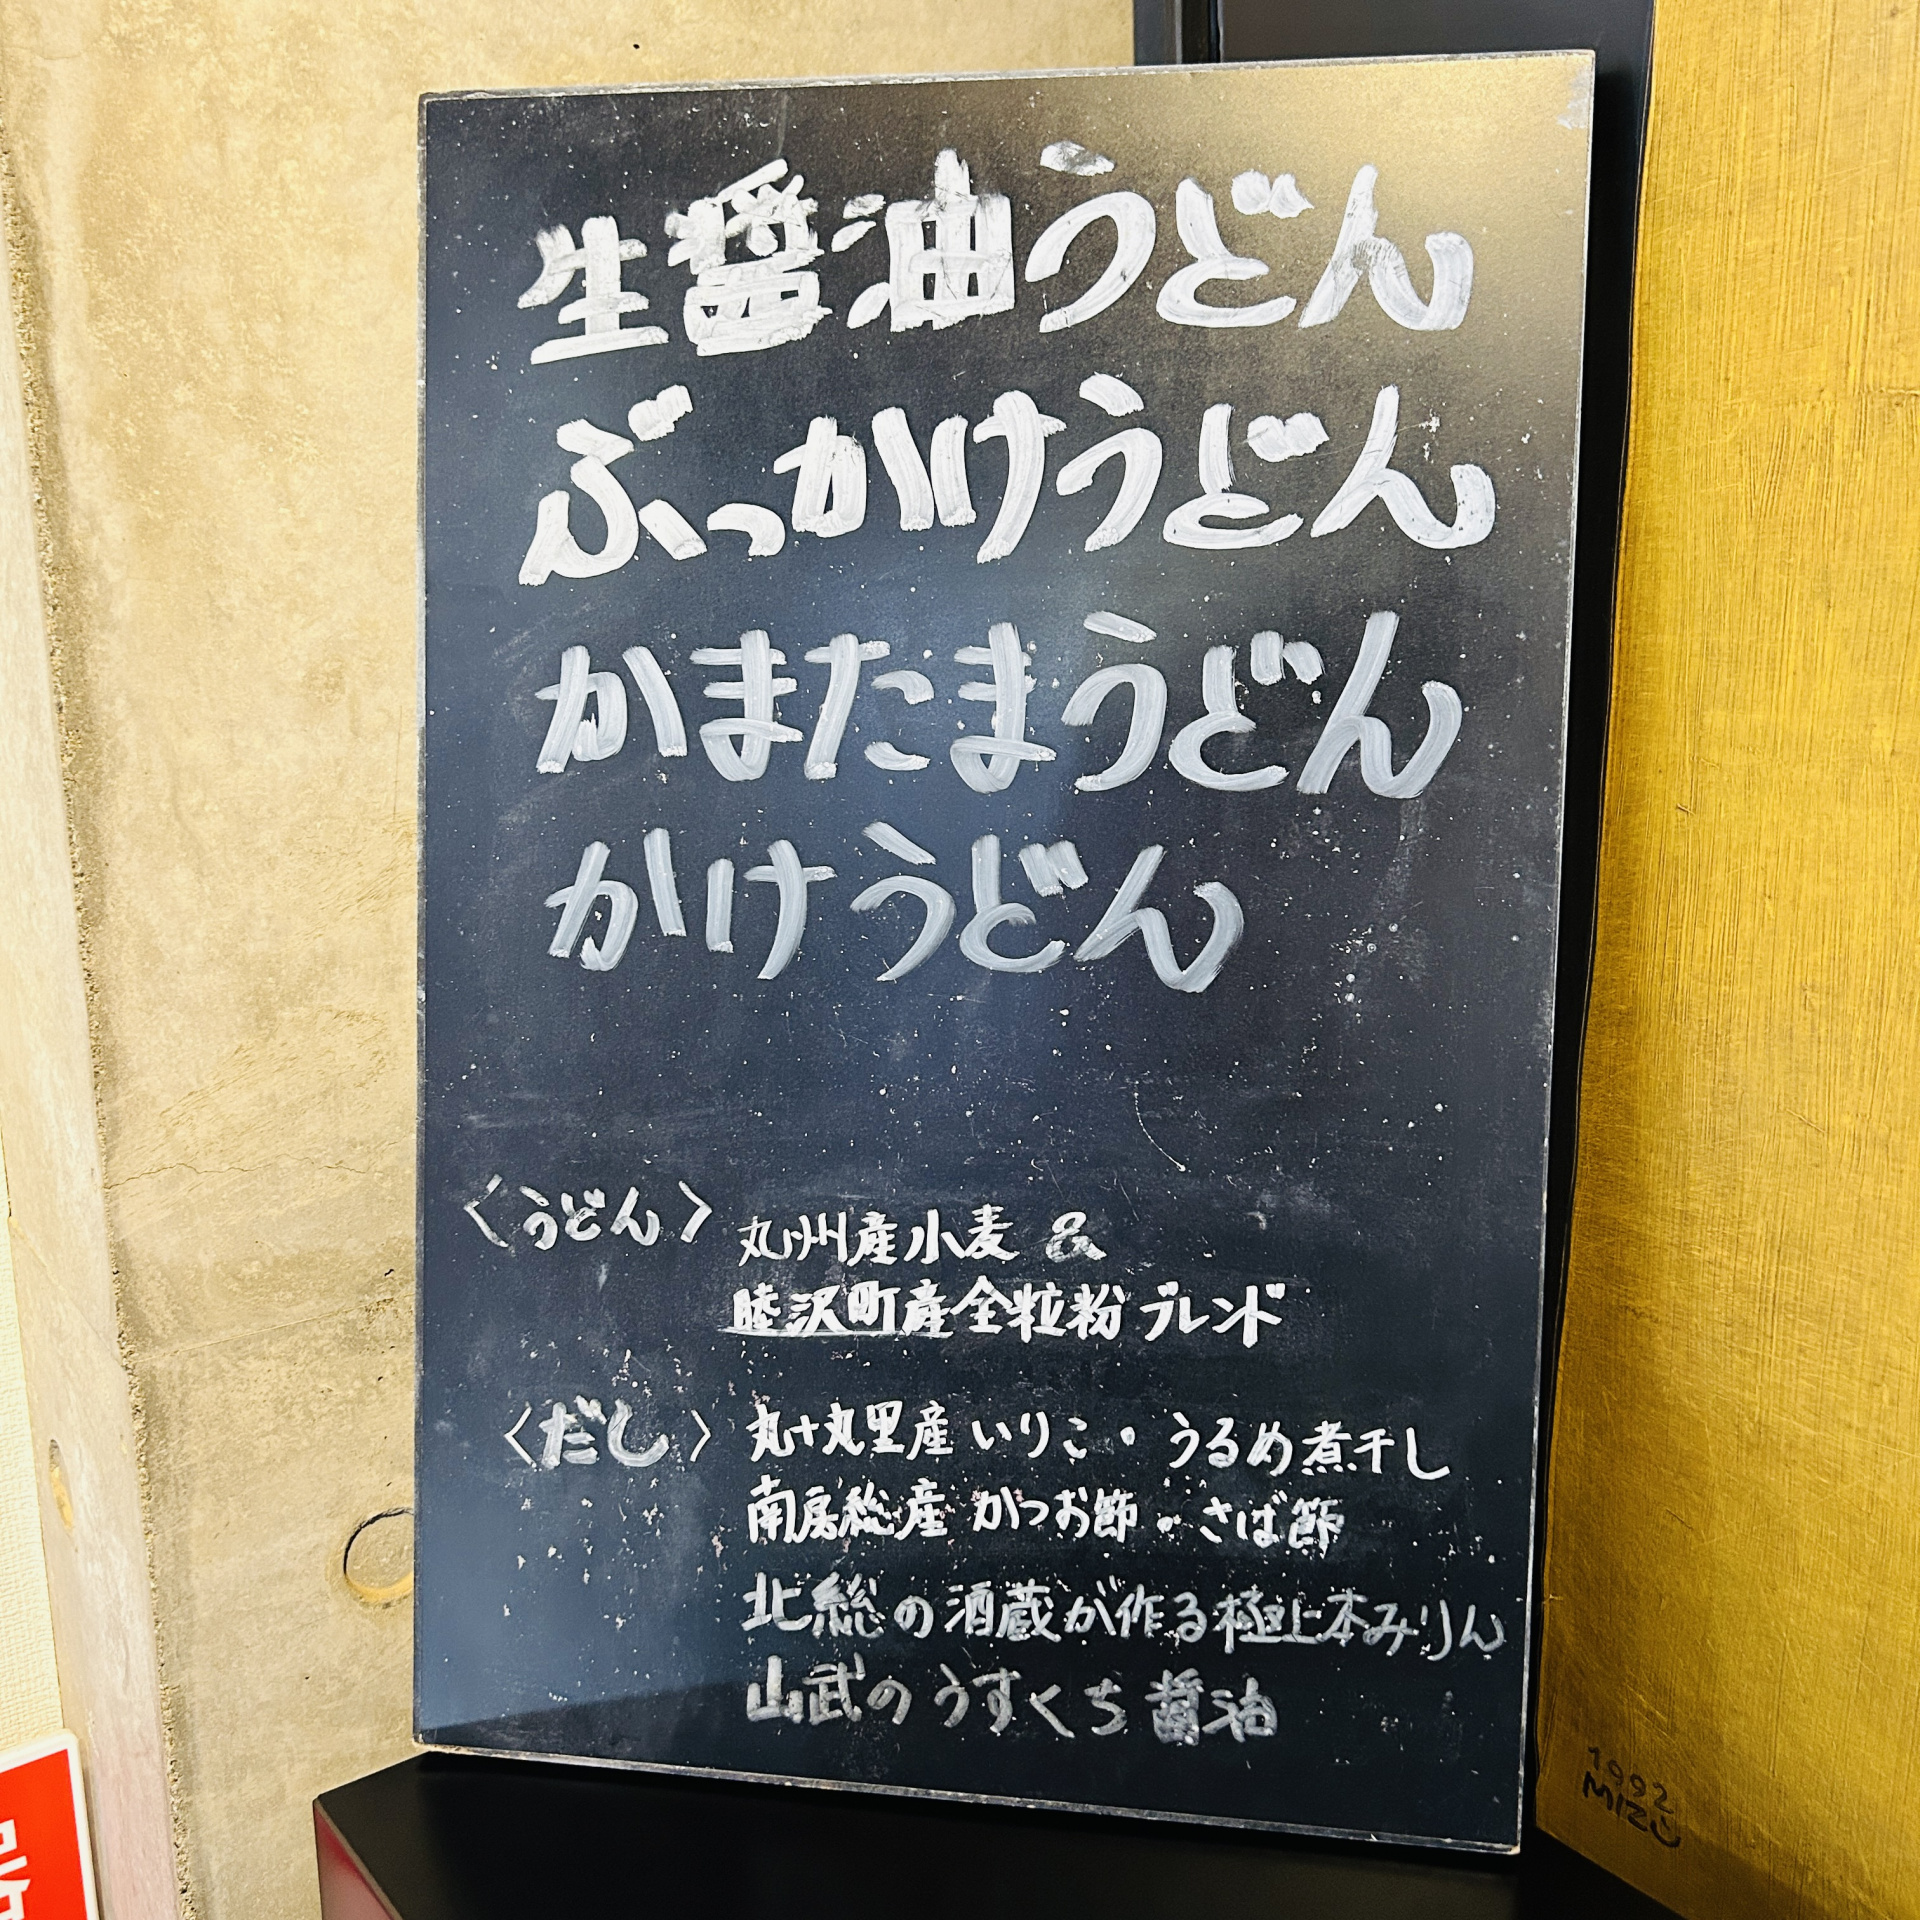 生醤油うどん
ぶっかけうどん
かまたまうどん
かけうどん
〈うどん〉 九州産小麦 &
睦沢町産全粒粉ブレンド
〈だし〉 九十九里産 いりこ・うるめ煮干し
南房総産 かつお節・さば節
北総の酒蔵が作る極上本みりん
山武のうすくち醤油
1992
MIZU